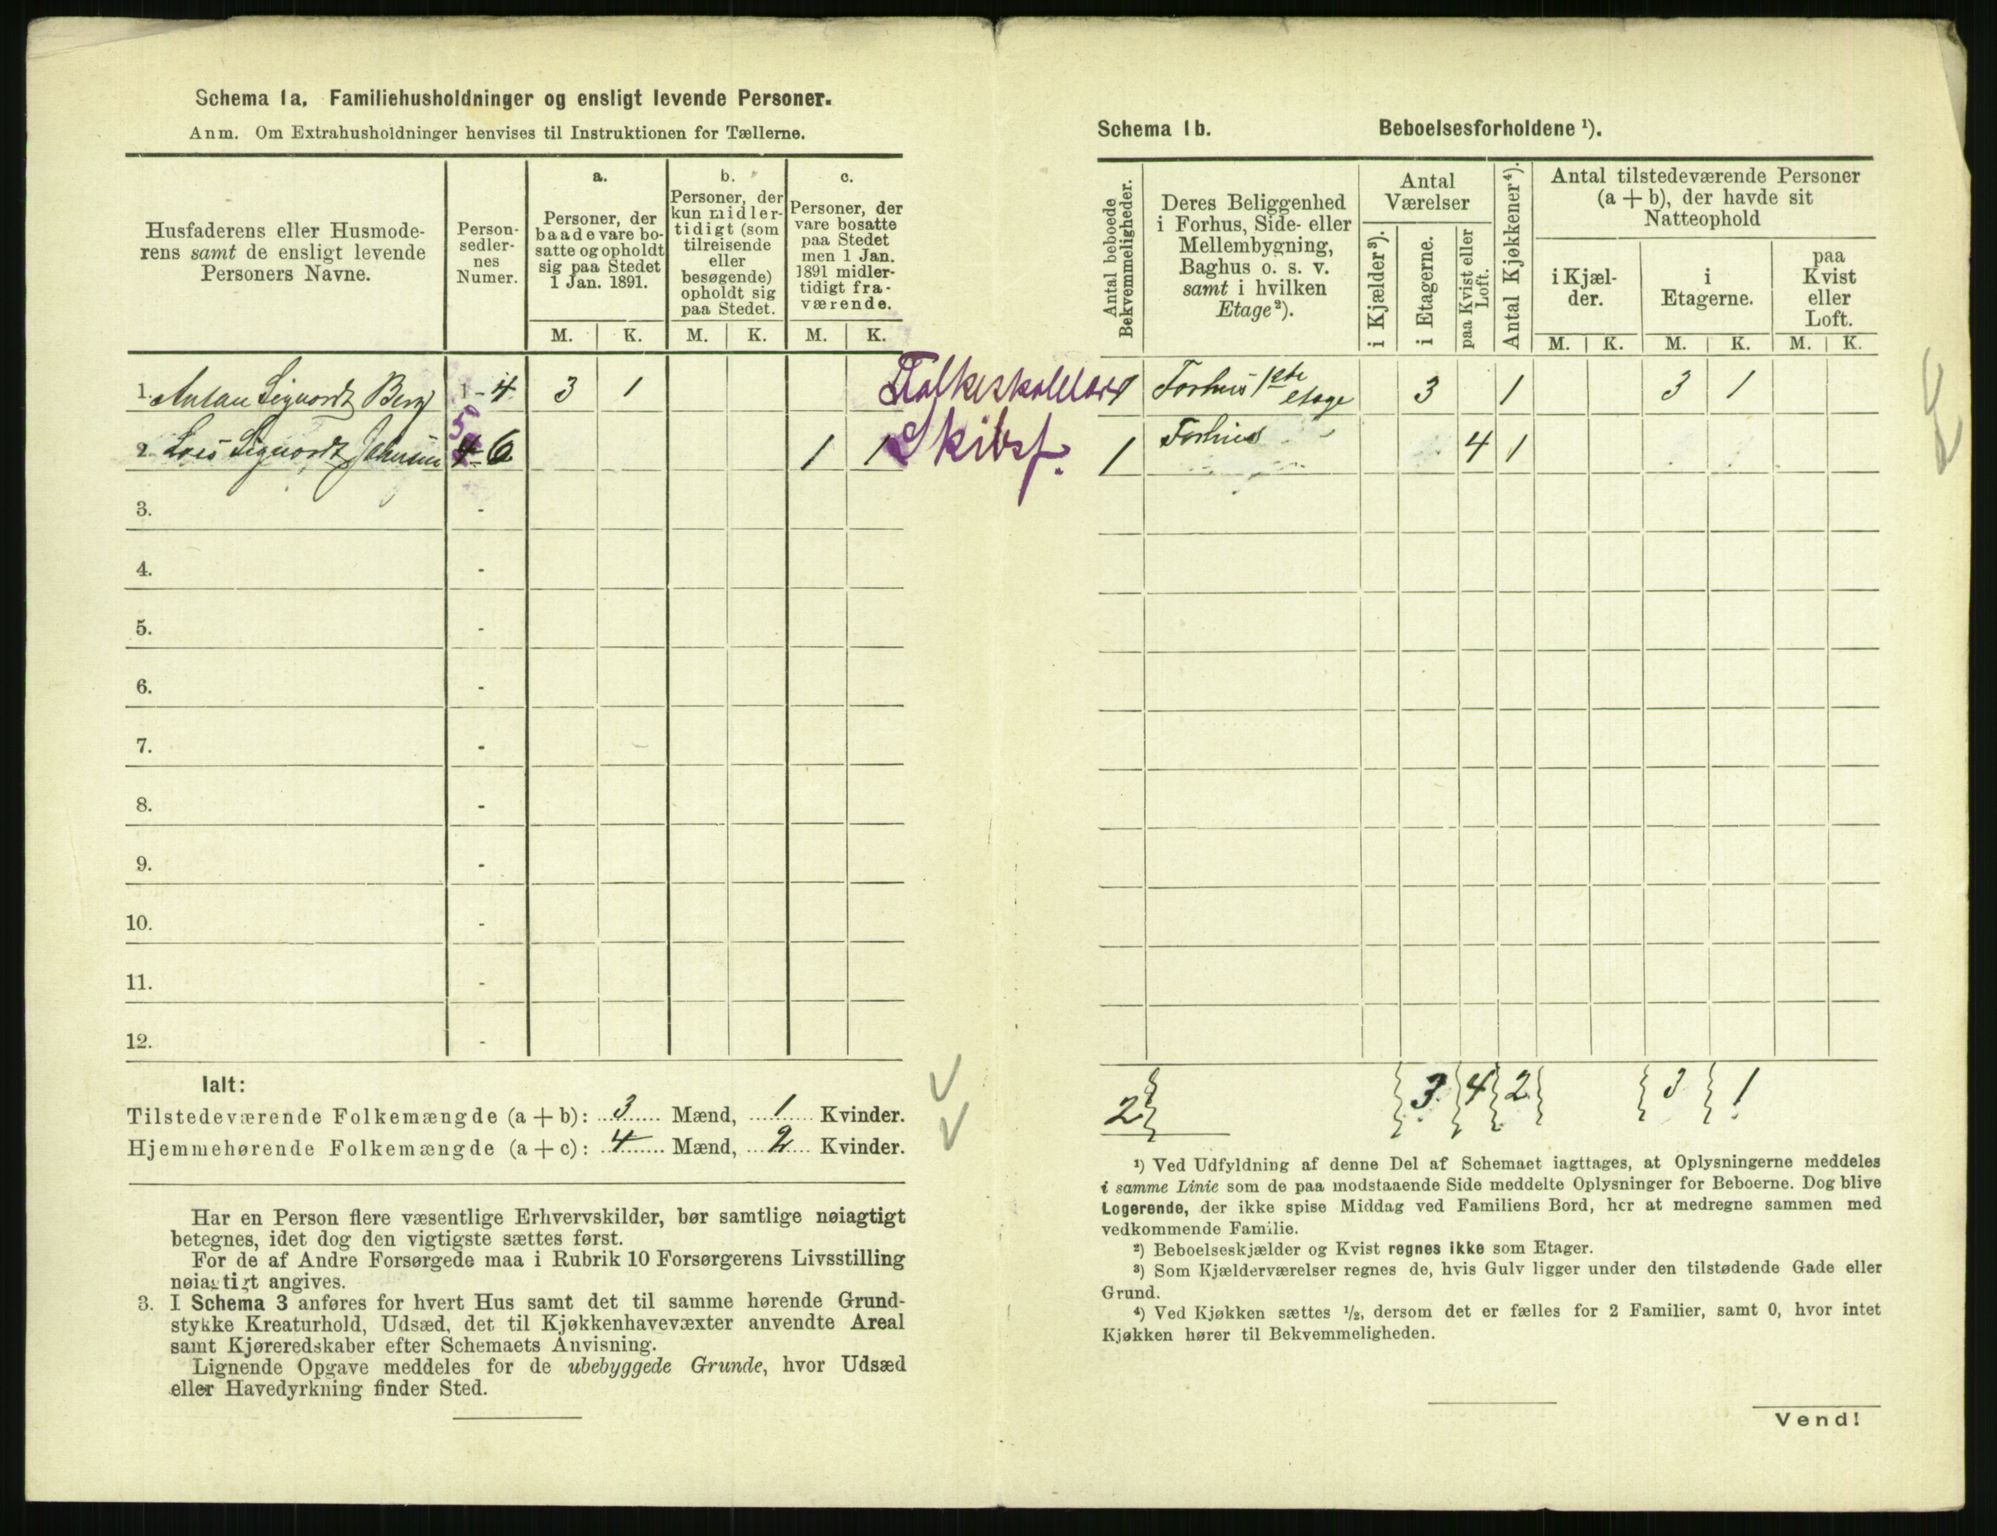 Schema 1a. Familiehusholdninger og ensligt levende Personer.
Anm. Om Extrahusholdninger henvises til Instruktionen for Tællerne.
Husfaderens eller Husmoderens samt de ensligt levende Personers Navne.
Person-sedler-nes Numer.
a.
Personer, der baade vare bosatte og opholdt sig paa Stedet 1 Jan. 1891.
b.
Personer, der kun midlertidigt (som tilreisende eller besøgende) opholdt sig paa Stedet.
c.
Personer, der vare bosatte paa Stedet men 1 Jan. 1891 midlertidigt fraværende.
M. K. M. K. M. K.
1. Antan Sigvordt Berg 1 - 4 3 1 Folkeskolelær
2. Sigvordt 5 4 - 6 1 1 Skibsf.
3. -
4. -
5. -
6. -
7. -
8. -
9. -
10. -
11. -
12. -
Ialt:
Tilstedeværende Folkemængde (a + b): 3 Mænd, 1 Kvinder.
Hjemmehørende Folkemængde (a + c): 4 Mænd, 2 Kvinder.
Har en Person flere væsentlige Erhvervskilder, bør samtlige nøiagtigt
betegnes, idet dog den vigtigste sættes først.
For de af Andre Forsørgede maa i Rubrik 10 Forsørgerens Livsstilling
nøiagtigt angives.
3. I Schema 3 anføres for hvert Hus samt det til samme hørende Grund-
stykke Kreaturhold, Udsæd, det til Kjøkkenhavevæxter anvendte Areal
samt Kjøreredskaber efter Schemaets Anvisning.
Lignende Opgave meddeles for de ubebyggede Grunde, hvor Udsæd
eller Havedyrkning finder Sted.
Schema 1b. Beboelsesforholdene ¹).
Antal beboede Bekvemmeligheder.
Deres Beliggenhed i Forhus, Side- eller Mellembygning, Baghus o. s. v. samt i hvilken Etage²).
Antal Værelser
i Kjælder³).
i Etagerne.
paa Kvist eller Loft.
Antal Kjøkkener⁴).
Antal tilstedeværende Personer (a + b), der havde sit Natteophold
i Kjælder.
i Etagerne.
paa Kvist eller Loft.
M. K. M. K. M. K.
1 Forhus 1ste etage 3 1 3 1
1 Forhus 4 1
2 3 4 2 3 1
¹) Ved Udfyldning af denne Del af Schemaet iagttages, at Oplysningerne meddeles
i samme Linie som de paa modstaaende Side meddelte Oplysninger for Beboerne. Dog blive
Logerende, der ikke spise Middag ved Familiens Bord, her at medregne sammen med
vedkommende Familie.
²) Beboelseskjælder og Kvist regnes ikke som Etager.
³) Som Kjælderværelser regnes de, hvis Gulv ligger under den tilstødende Gade eller
Grund.
⁴) Ved Kjøkken sættes ½, dersom det er fælles for 2 Familier, samt 0, hvor intet
Kjøkken hører til Bekvemmeligheden.
Vend!